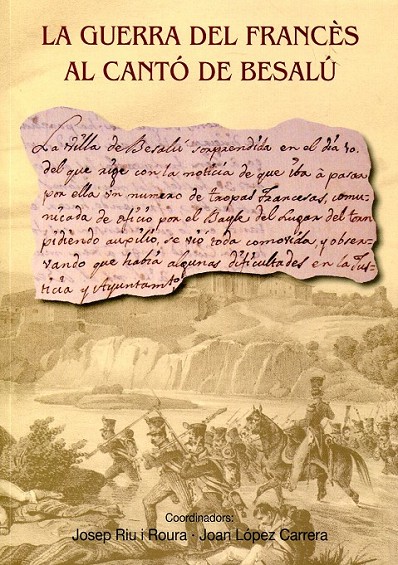 LA GUERRA DEL FRANCÈS
AL CANTÓ DE BESALÚ
La villa de Besalú sorprendida en el dia 10.
del que rige con la noticia de que iba à pasar
por ella un numero de tropas Francesas, comu-
nicada de oficio por el Bayle del Lugar del torn
pidiendo auxilio, se vió toda comovida, y obser-
vando que habia algunas dificultades en la Jus-
ticia y Ayuntamto
Coordinadors:
Josep Riu i Roura · Joan López Carrera